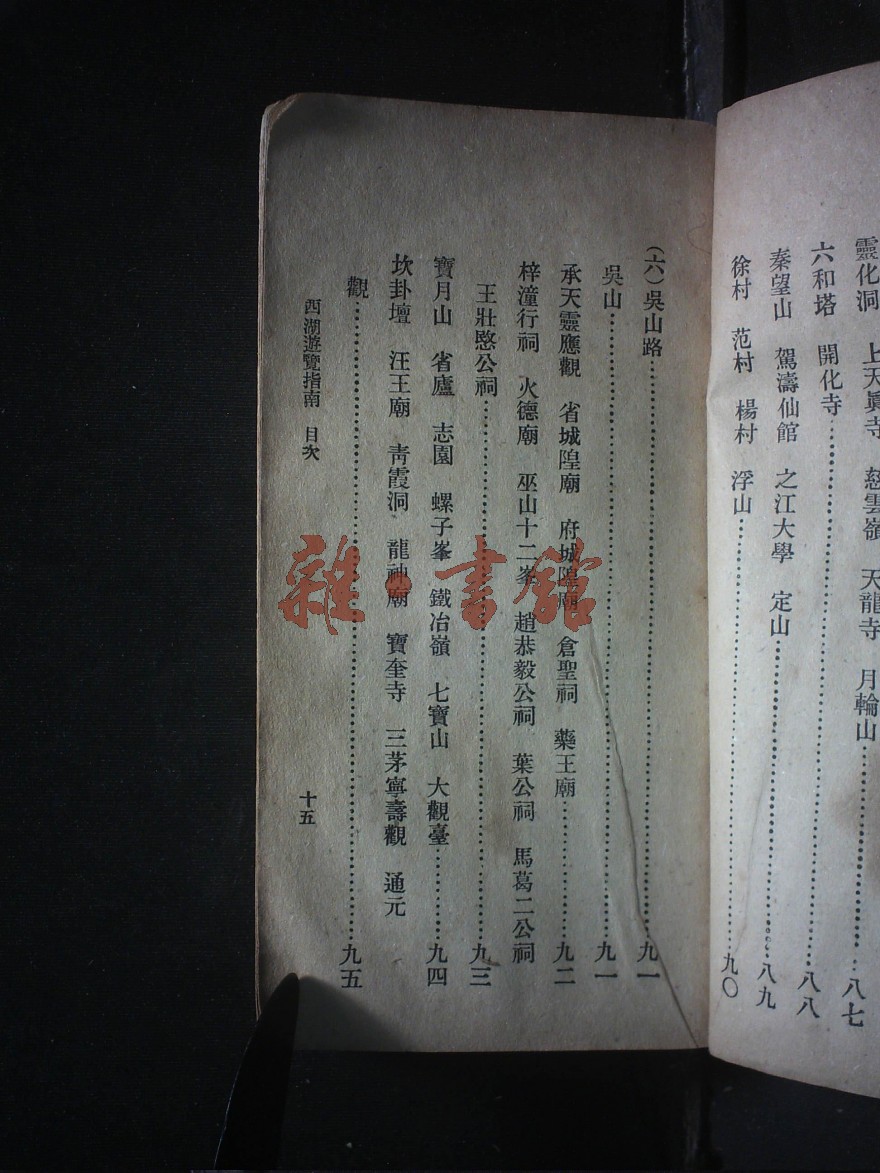 靈化洞　上天眞寺　慈雲嶺　天龍寺　月輪山……八七
六和塔　開化寺……八八
秦望山　駕濤仙館　之江大學　定山……八九
徐村　范村　楊村　浮山……九〇
(六)吳山路……九一
吳山……九一
承天靈應觀　省城隍廟　府城隍廟　倉聖祠　藥王廟……九二
梓潼行祠　火德廟　巫山十二峯　趙恭毅公祠　葉公祠　馬葛二公祠
王壯愍公祠……九三
寶月山　省廬　志園　螺子峯　鐵冶嶺　七寶山　大觀臺……九四
坎卦壇　汪王廟　靑霞洞　龍神廟　寶奎寺　三茅寧壽觀　通元
觀……九五
西湖遊覽指南　目次
十五
雜·書館